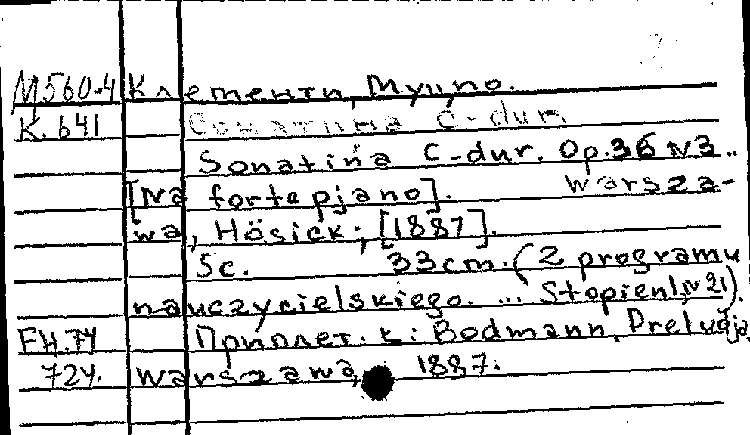 М560-4 Клементи, Муцио.
К.641 Сонатина C-dur.
Sonatina C-dur. Op.36 N3..
[Na fortepjano]. Warsza-
wa, Hösick, [1887].
5c. 33cm. (Z programu
nauczycielskiego. ... Stopień I, N21).
FH.74 Приплет. к: Bodmann. Preludja
724. Warszawa, 1887.